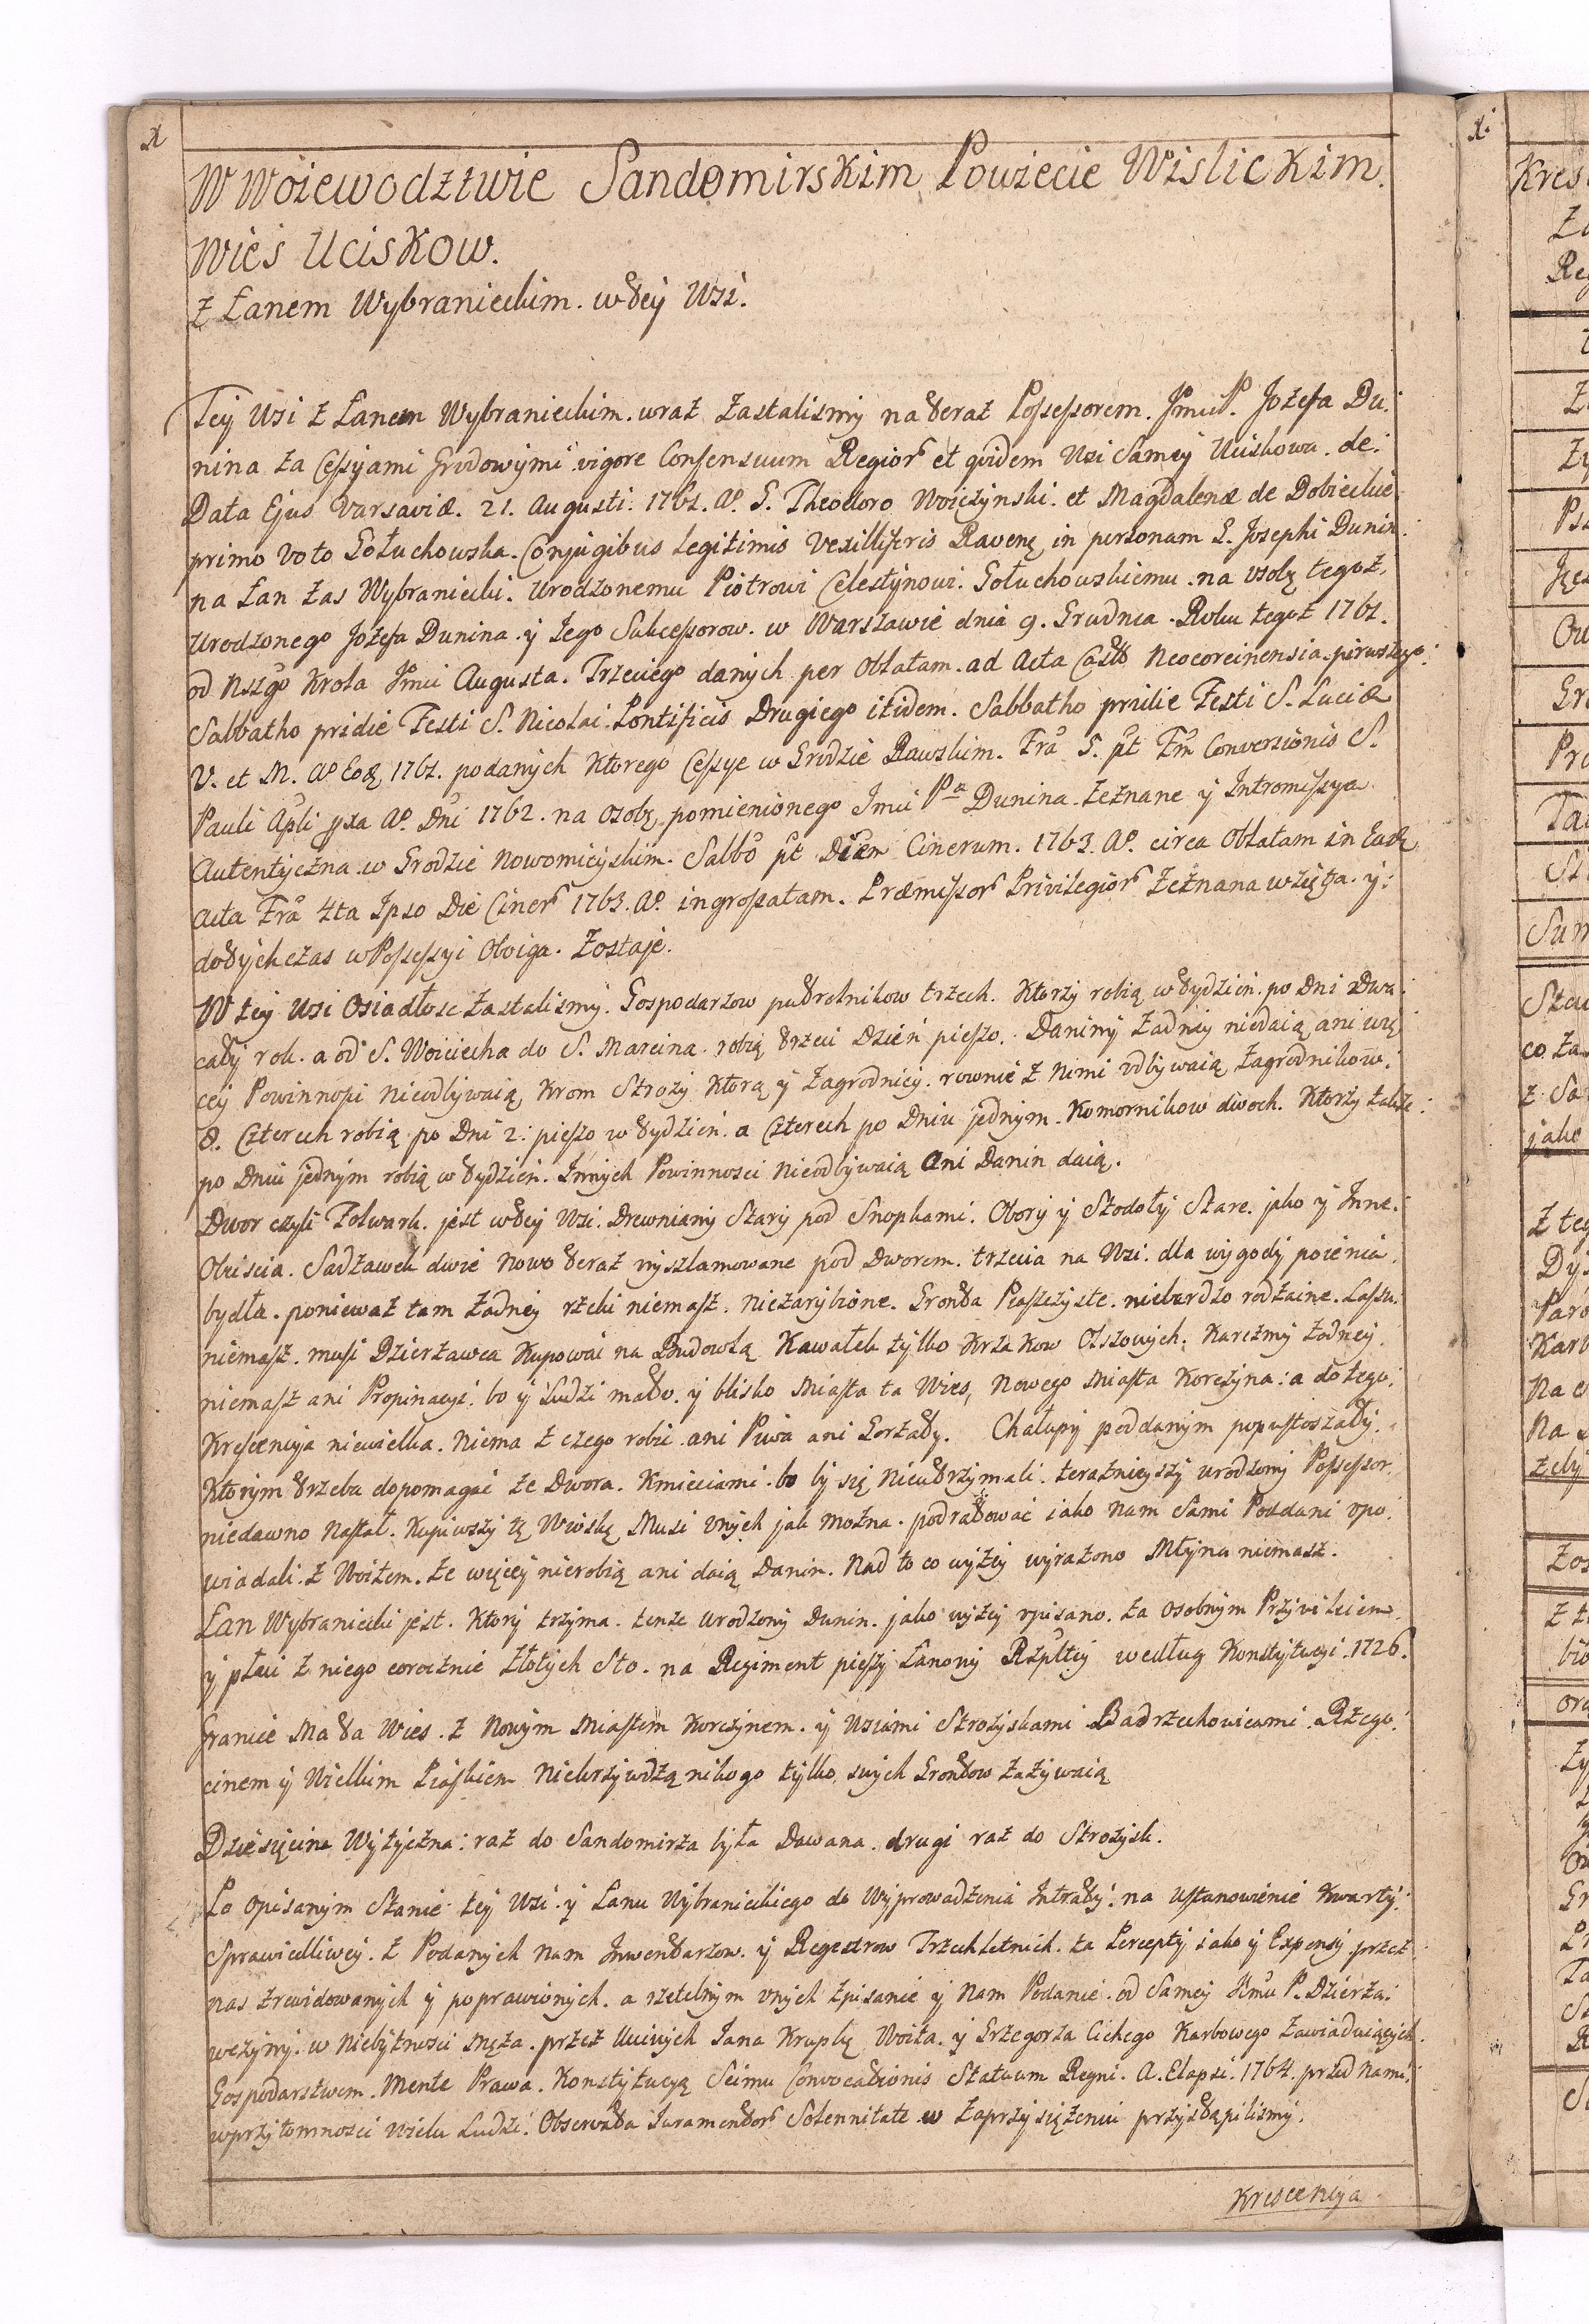 W Woiewodztwie Sandomirskim Powiecie Wislickim.
Wieś Uciskow.
Z Łanem Wybranieckim. w tey Wsi.
Tey Wsi z Łanem Wybranieckim. wraz Zastalismy na teraz Possessorem. Jmci P. Jozefa Du:
nina za Cessyami Grodowymi vigore Consensuum Regior. et quidem Wsi Samey Uciskowa. de:
Data Ejus Varsaviæ. 21. Augusti. 1761. Aō. G. Theodoro Woiczynski. et Magdalenæ de Dobieckie
primo Voto Gołuchowska. Conjugibus Legitimis Vexilliferis Ravenę in personam G. Josephi Dunin.
na Łan zas Wybraniecki. Urodzonemu Piotrowi Celestynowi. Gołuchowskiemu. na osobę tegoż
Urodzonego Jozefa Dunina. y Jego Sukcessorow. w Warszawie dnia 9. Grudnia. Roku tegoż 1761.
od Nszgo Krola Jmci Augusta. Trzeciego danych per Oblatam. ad Acta Castr. Neocorcinensia. pirwszego:
Sabbatho pridie Festi S. Nicolai Pontificis Drugiego itidem. Sabbatho pridie Festi S. Luciæ
V. et M. Aō Eodę 1761. podanych Ktorego Cessye w Grodzie Rawskim. Fra 5. pt Fm Conversionis S.
Pauli Apli pxa Aō. Dni 1762. na osobę pomienionego Jmci Pa Dunina. Zeznane y Intromissya
Autentyczna. w Grodzie Nowomieyskim. Sabbo pt Diem Cinerum. 1763. Aō. circa Oblatam in Eadę
Acta Fra 4ta Ipso Die Ciner. 1763. Aō. ingrossatam. Præmissor. Privilegior. Zeznana wzięta. y:
dotychczas w Possessyi Oboiga. Zostaje.
W tey Wsi Osiadłosc Zastalismy. Gospodarzow pułrolnikow trzech. Ktorzy robią w tydzień. po Dni 2 Dwa:
cały rok. a od S. Woyciecha do S. Marcina. robią trzeci dzień pieszo. Daniny Zadney niedaią ani wię
cey Powinności nieodbywaią, Krom Strozy Ktorą y Zagrodnicy. rownie z nimi odbywaią Zagrodnikow.
8. Czterech robią po Dni 2. pieszo w tydzień. a Czterech po Dniu jednym. Komornikow dwoch. Ktorzy takze:
po Dniu jednym robią w tydzień. Innych Powinnosci nieodbywaią Ani Danin daią.
Dwor czyli Folwark. jest w tey Wsi. Drewniany Stary pod Snopkami. Obory y Stodoły Stare. jako y Inne:
Obeiscia. Sadzawek dwie nowo teraz wyszlamowane pod Dworem. trzecia na Wsi. dla wygody poienia
bydła. poniewaz tam zadney rzeki niemasz. niezarybione. Gronta Piaszczyste. niebardzo rodzaine. Lassu.
niemasz. musi Dzierzawca Kupować na Budowlą Kawałek tylko Krzakow Olszowych. Karczmy żadney.
niemasz ani Propinacyi. bo y Ludzi mało. y blisko Miasta ta Wies, Nowego Miasta Korczyna: a do tego:
Krescencya niewielka. niema z czego robić ani Piwa ani Gorzały. Chałupy poddanym popustoszały.
Ktorym trzeba dopomagać ze Dwora. Kmieciami. bo by się nieutrzymali. teraznieyszy Urodzony Possessor.
niedawno nastał. Kupiwszy tę Wioskę Musi onych jak można. podratować iako nam Sami Poddani opo:
wiadali. z Woitem. ze więcey nierobią ani daią Danin. Nad to co wyzey wyrazono Młyna niemasz.
Łan Wybraniecki jest. Ktory trzyma. tenże Urodzony Dunin. jako wyzey opisano. za osobnym Przywileiem.
y płaci z niego corocznie Złotych Sto. na Regiment pieszy Łanowy Rzpltey według Konstytucyi. 1726.
Granice Ma ta Wies. z Nowym Miastem Korczynem. y Wsiami Strozyskami Badrzychowicami. Rzego:
cinem y Wielkim Piaskiem Niekrzywdzą nikogo tylko swych Grontow zazywaią
Dziesięcina Wytyczna: raz do Sandomirza była Dawana. drugi raz do Strozysk.
Po opisanym Stanie tey Wsi y Łanu Wybranieckiego do Wyprowadzenia Intraty. na ustanowienie Kwarty.
Sprawiedliwey. z Podanych nam Inwentarzow. y Regestrow Trzechletnich. ta Percepty iako y Expensy przez
nas zrewidowanych y poprawionych. a rzetelnym onych spisanie y nam Podanie. od Samey Jmci P. Dzierza:
wczyny. w Niebytnosci męza. przez Uczciwych Jana Krupkę Woita. y Grzegorza Cichego Karbowego Zawiaduiących.
Gospodarstwem. Mente Prawa. Konstytucyą Seimu Convocationis Statuum Regni. A. Elapsi. 1764. przed Nami.
w przytomnosci Wielu Ludzi. Observata Juramentor. Solennitate w Zaprzysięzeniu przystąpilismy.
Krescencya